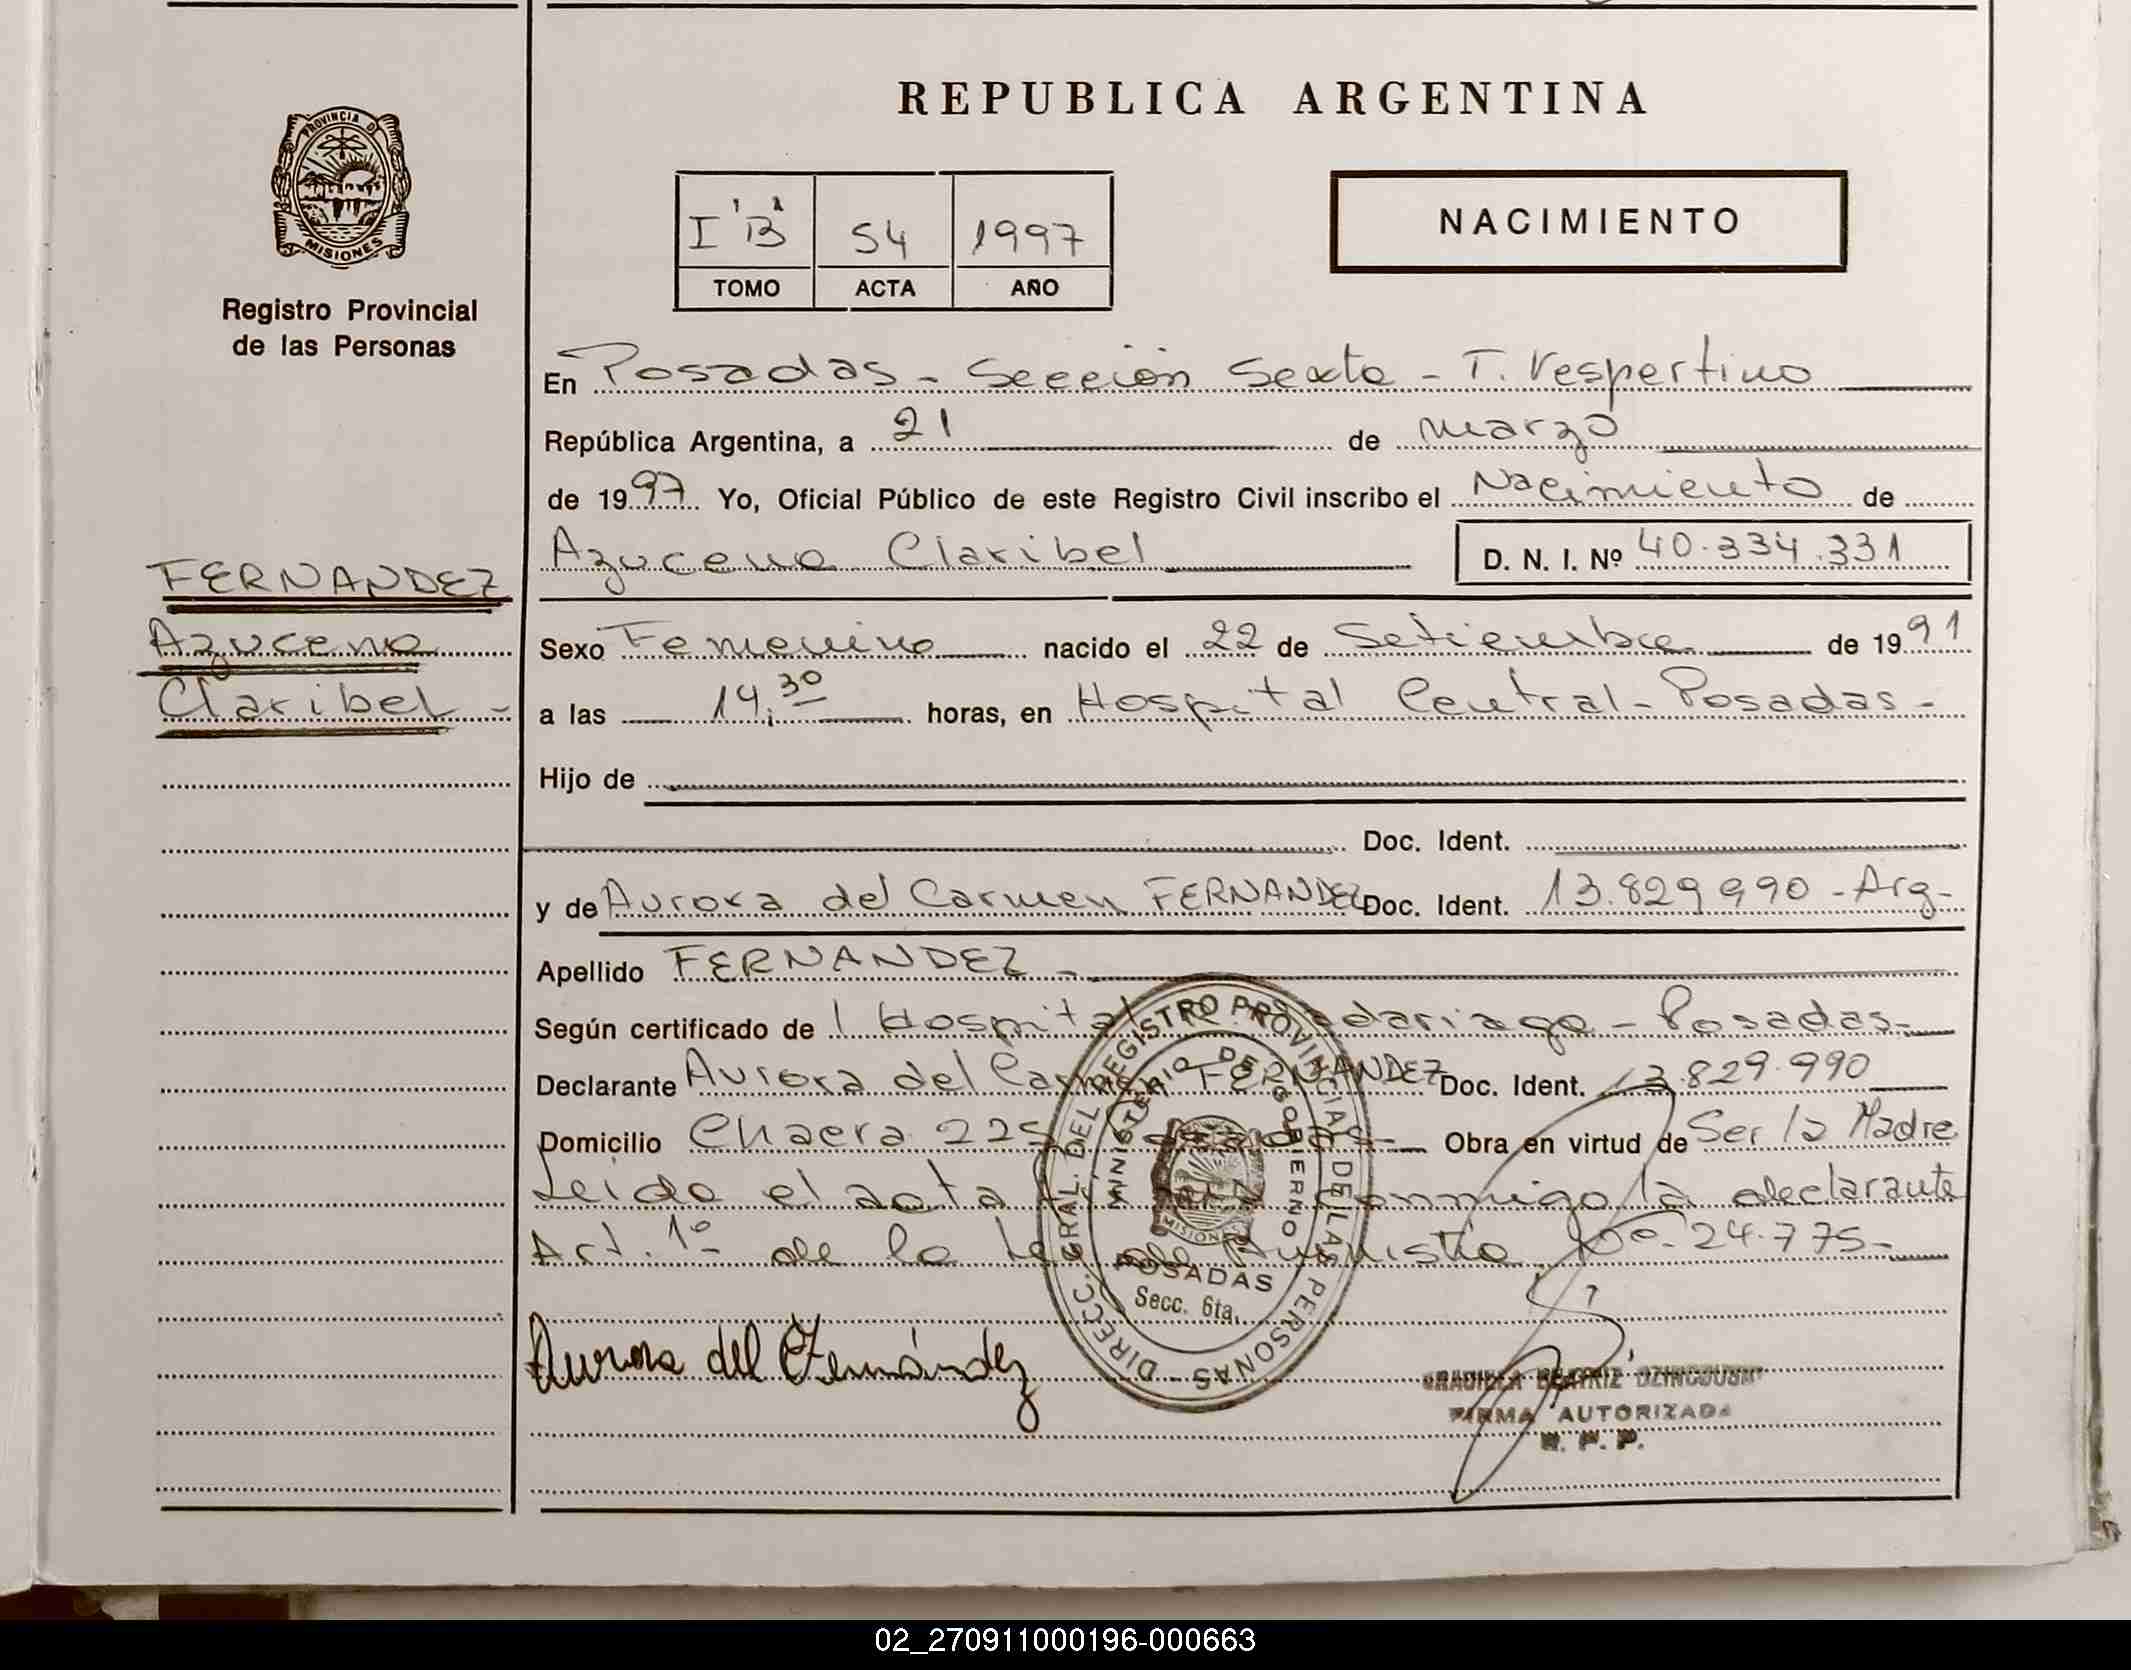 PROVINCIA DE
MISIONES
Registro Provincial
de las Personas
FERNANDEZ
Azucena
Claribel -
REPUBLICA ARGENTINA
I "B" 54 1997
TOMO ACTA AÑO
NACIMIENTO
En Posadas - Sección Sexta - T. Vespertino
República Argentina, a 21 de marzo
de 1997 Yo, Oficial Público de este Registro Civil inscribo el Nacimiento de
Azucena Claribel D. N. I. Nº 40.334.331
Sexo Femenino nacido el 22 de Setiembre de 1991
a las 14,30 horas, en Hospital Central - Posadas -
Hijo de
Doc. Ident.
y de Aurora del Carmen FERNANDEZ Doc. Ident. 13.829.990 - Arg -
Apellido FERNANDEZ -
Según certificado de l Hospital Madariaga - Posadas -
Declarante Aurora del Carmen FERNANDEZ Doc. Ident. 13.829.990
Domicilio Chacra 225 Posadas - Obra en virtud de Ser la Madre
Leida el acta conmigo la declarante
Art. 1º de la Ley de Amnistia No. 24.775 -
DIRECC. GRAL. DEL REGISTRO PROVINCIAL DE LAS PERSONAS -
MINISTERIO DE GOBIERNO
MISIONES
POSADAS
Secc. 6ta.
Aurora del C Fernández
BEATRIZ
FIRMA AUTORIZADA
R. P. P.
02_270911000196-000663